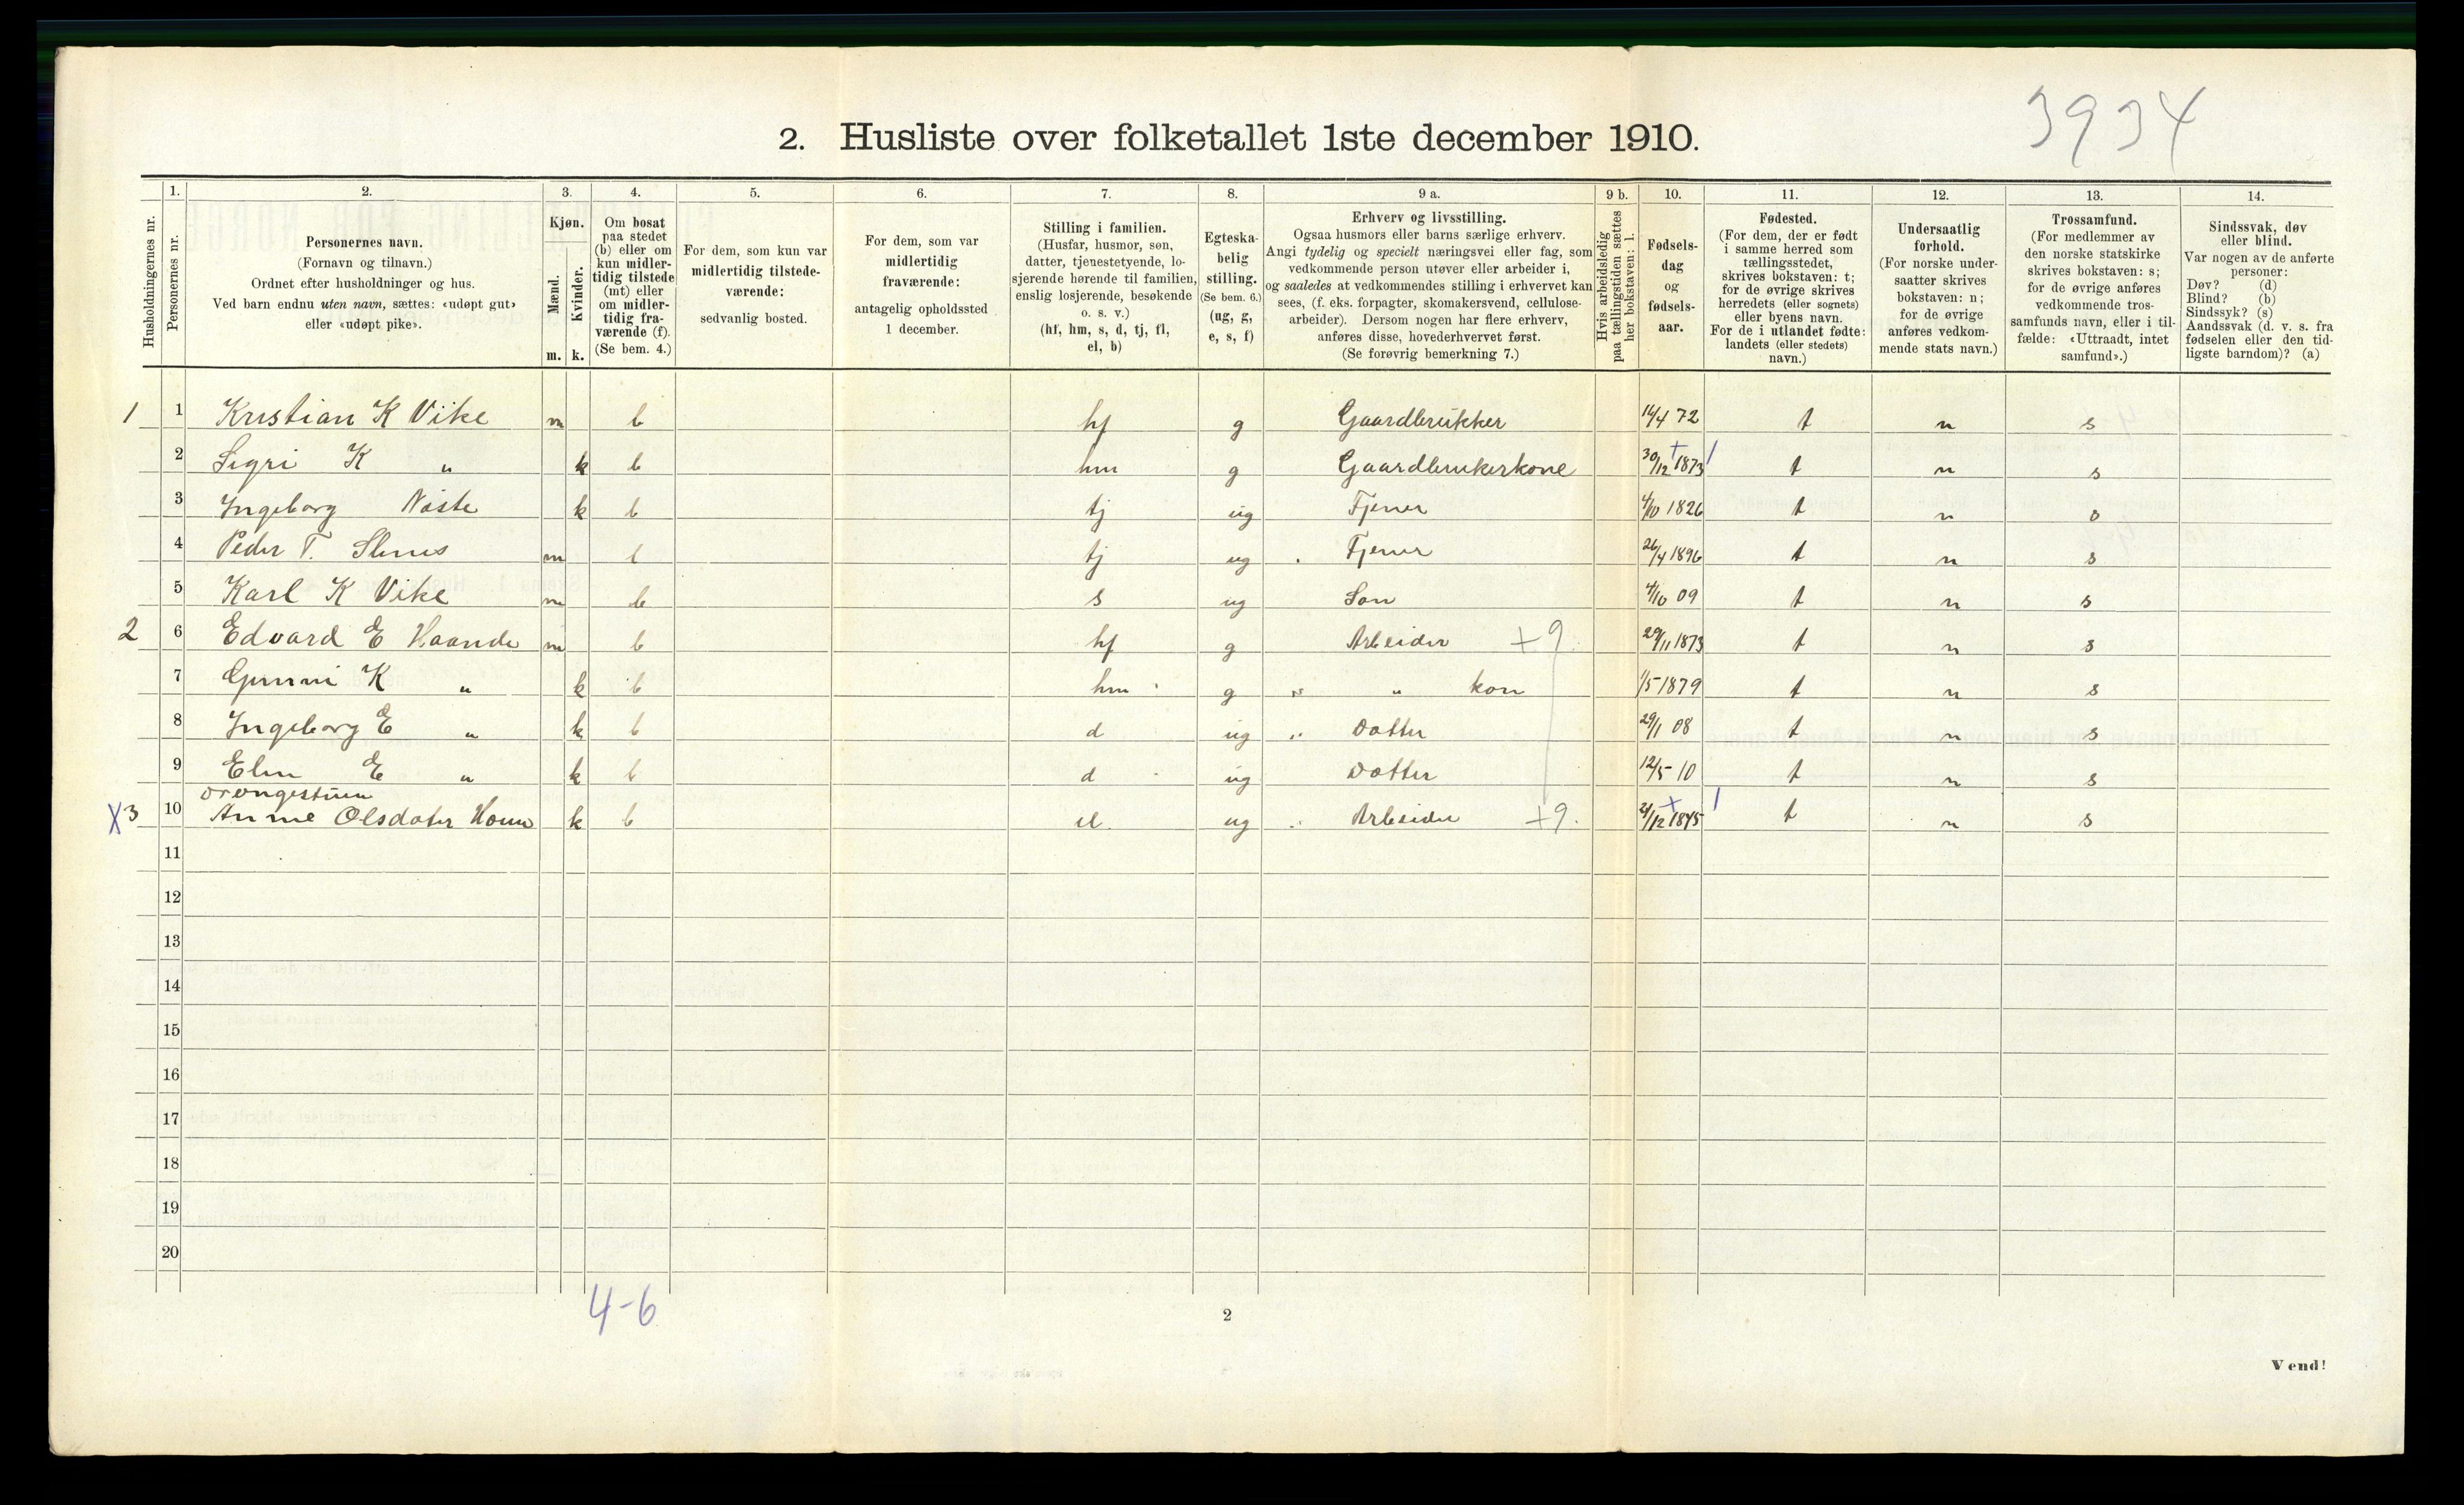 3934
2. Husliste over folketallet 1ste december 1910.
Husholdningernes nr.
1.
Personernes nr.
2.
Personernes navn.
(Fornavn og tilnavn.)
Ordnet efter husholdninger og hus.
Ved barn endnu uten navn, sættes: «udøpt gut»
eller «udøpt pike».
3.
Kjøn.
Mænd.
Kvinder.
m. k.
4.
Om bosat
paa stedet
(b) eller om
kun midler-
tidig tilstede
(mt) eller
om midler-
tidig fra-
værende (f).
(Se bem. 4.)
5.
For dem, som kun var
midlertidig tilstede-
værende:
sedvanlig bosted.
6.
For dem, som var
midlertidig
fraværende:
antagelig opholdssted
1 december.
7.
Stilling i familien.
(Husfar, husmor, søn,
datter, tjenestetyende, lo-
sjerende hørende til familien,
enslig losjerende, besøkende
o. s. v.)
(hf, hm, s, d, tj, fl,
el, b)
8.
Egteska-
belig
stilling.
(Se bem. 6.)
(ug, g,
e, s, f)
9 a.
Erhverv og livsstilling.
Ogsaa husmors eller barns særlige erhverv.
Angi tydelig og specielt næringsvei eller fag, som
vedkommende person utøver eller arbeider i,
og saaledes at vedkommendes stilling i erhvervet kan
sees, (f. eks. forpagter, skomakersvend, cellulose-
arbeider). Dersom nogen har flere erhverv,
anføres disse, hovederhvervet først.
(Se forøvrig bemerkning 7.)
9 b.
Hvis arbeidsledig
paa tællingstiden sættes
her bokstaven: l.
10.
Fødsels-
dag
og
fødsels-
aar.
11.
Fødested.
(For dem, der er født
i samme herred som
tællingsstedet,
skrives bokstaven: t;
for de øvrige skrives
herredets (eller sognets)
eller byens navn.
For de i utlandet fødte:
landets (eller stedets)
navn.)
12.
Undersaatlig
forhold.
(For norske under-
saatter skrives
bokstaven: n;
for de øvrige
anføres vedkom-
mende stats navn.)
13.
Trossamfund.
(For medlemmer av
den norske statskirke
skrives bokstaven: s;
for de øvrige anføres
vedkommende tros-
samfunds navn, eller i til-
fælde: «Uttraadt, intet
samfund».)
14.
Sindssvak, døv
eller blind.
Var nogen av de anførte
personer:
Døv? (d)
Blind? (b)
Sindssyk? (s)
Aandssvak (d. v. s. fra
fødselen eller den tid-
ligste barndom)? (a)
1 1 Kristian K Vike m b hf g Gaardbrukker 14/4 72 t n s
2 Sigri K " k b hm g Gaardbrukerkone 30/12 1873 t n s
3 Ingeborg k b tj ug Tjener 4/10 1826 t n s
4 Peder T. m b tj ug Tjener 26/4 1896 t n s
5 Karl K Vike m b s ug Søn 4/10 09 t n s
2 6 Edvard E Haande m b hf g Arbeider +9. 29/11 1873 t n s
7 Gunni K " k b hm g " kon 1/5 1879 t n s
8 Ingeborg E " k b d ug Datter 29/1 08 t n s
9 Elin E " k b d ug Datter 12/5 10 t n s
X 3 10 Anne Olsdater k b el ug Arbeider +9. 21/12 1845 t n s
11
12
13
14
15
16
17
18
19
20
4-6
2
Vend!